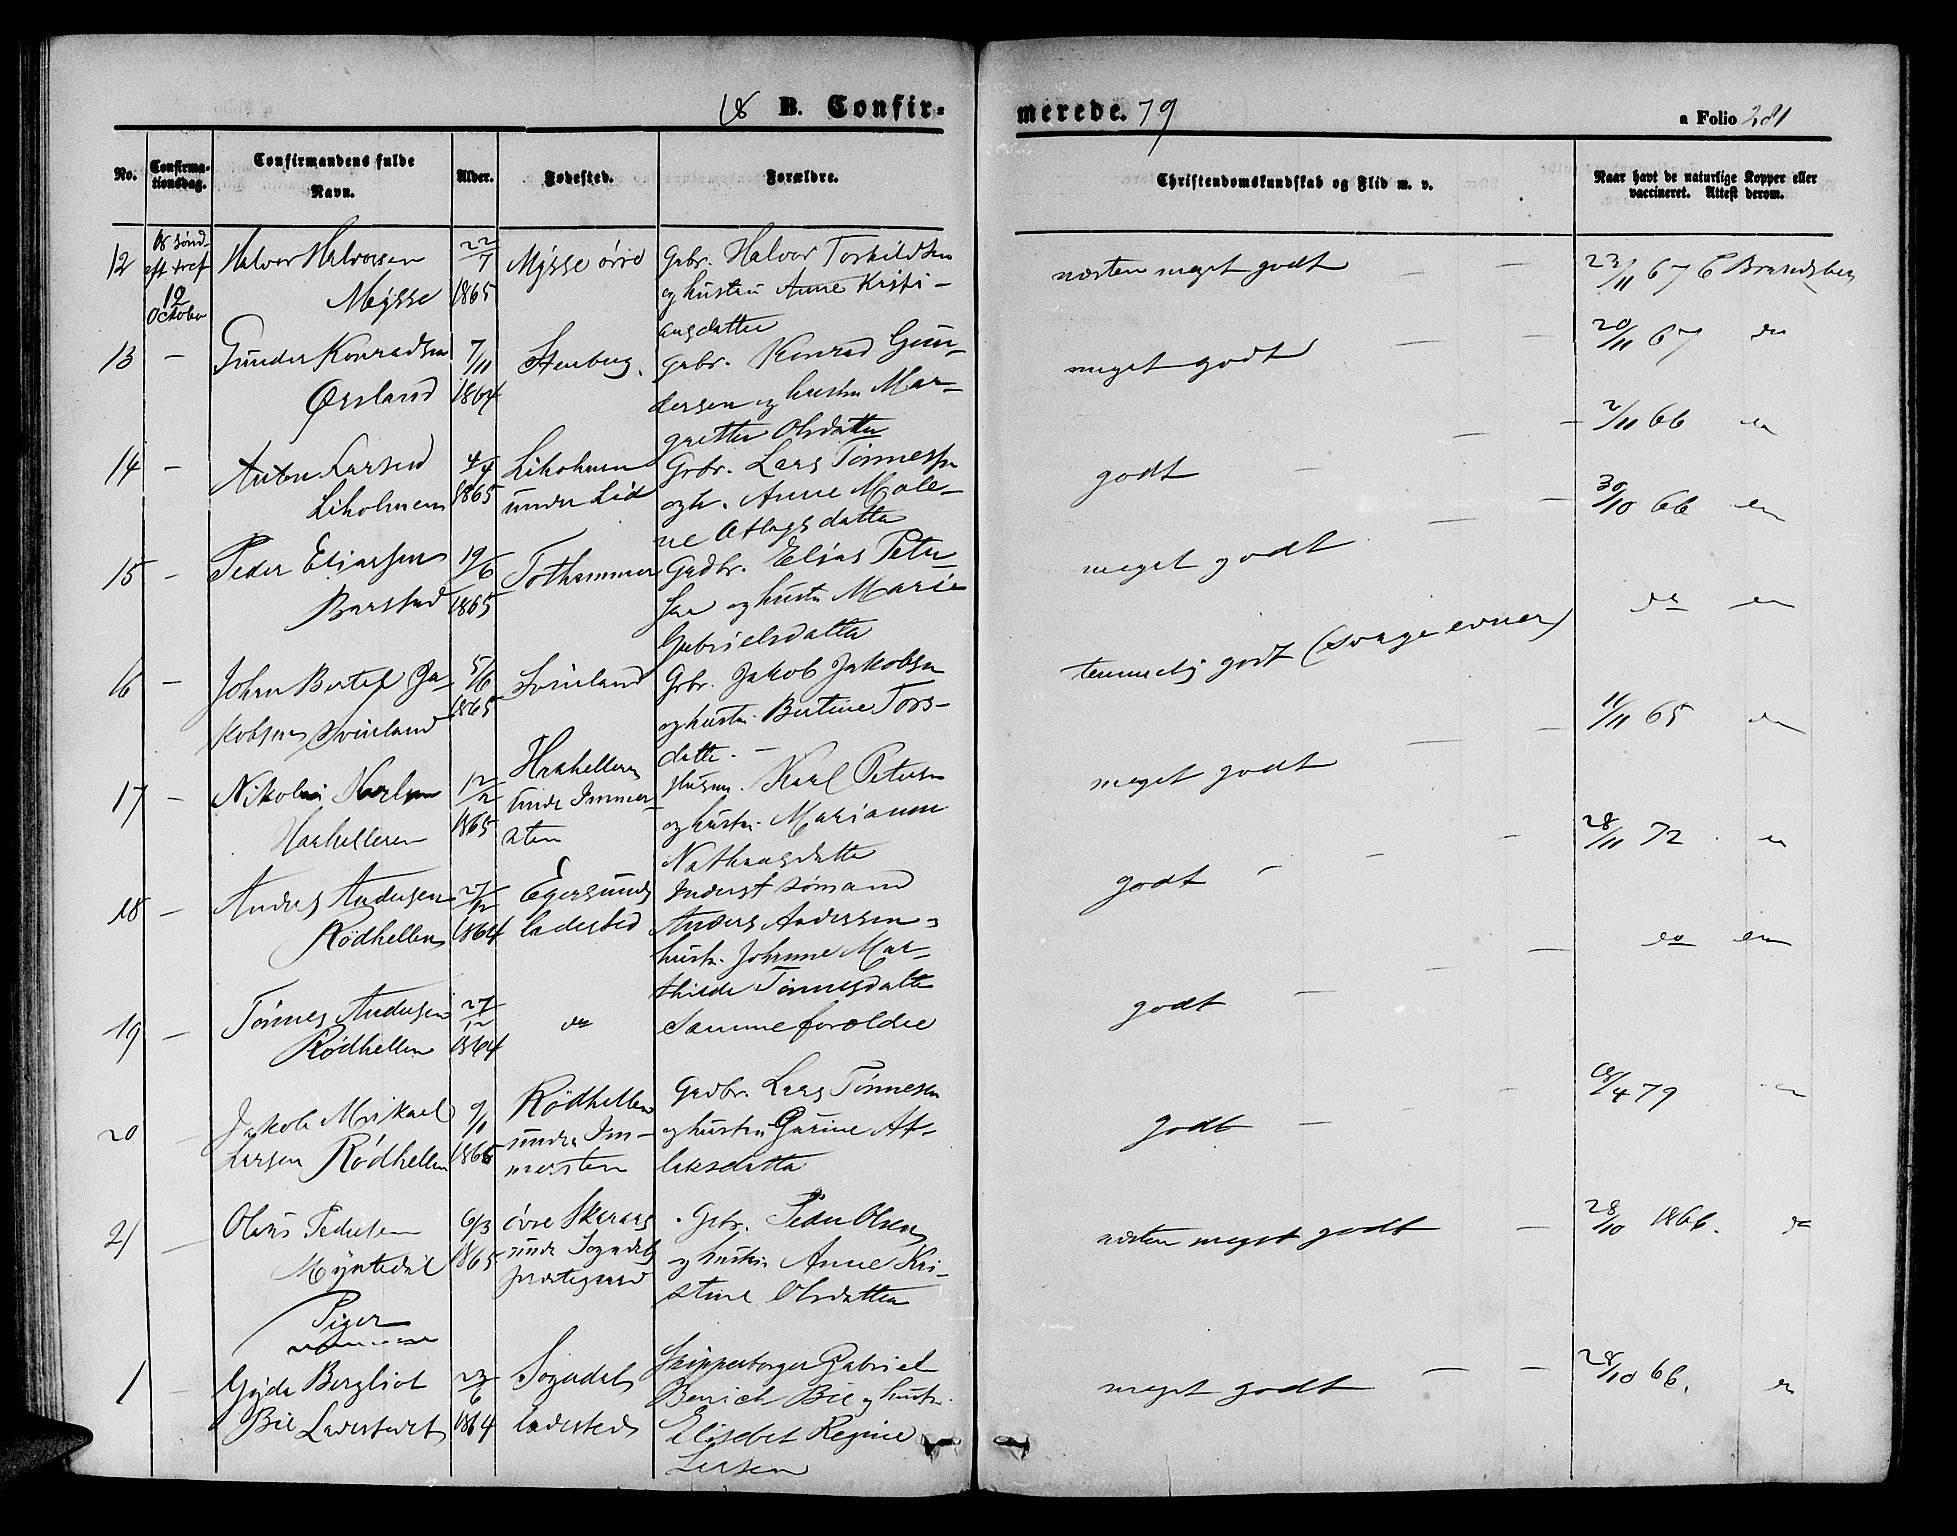 18 B. Confir-
merede. 79
a Folio 281
No.
Confirma-
tionsdag.
Confirmandens fulde
Navn.
Alder.
Fødested.
Forældre.
Christendomskundskab og Flid m. v.
Naar havt de naturlige Kopper eller
vaccineret. Attest derom.
12
18 sønd.
eft tref
12
October
Halvor Halvorsen
Mysse
22/7
1865
Mysse øvre
Grbr. Halvor Torkildsen
og hustru Anne Kristi-
ansdatter
næsten meget godt
23/11 67 C Brandsberg
13 —
Gunder Konradsen
Ørsland
7/11
1864
Stenberg
grbr. Konrad Gun-
dersen og hustru Mar-
grette Olsdatter
meget godt
20/11 67 do
14 —
Anton Larsen
Liholmen
4/4
1865
Liholmen
under Lid
Grbr. Lars Tønnesen
og h. Anne Male-
ne Atlagsdatter
godt
2/11 66 do
15 —
Peder Eliassen
Barstad
19/6
1865
Tothammer
Gadbr. Elias Peter-
sen og hustru Marie
Gabrielsdatter
meget godt
30/10 66 do
16 —
Johan Bertel Ja-
kobsen Svinland
5/6
1865
Svinland
Grbr. Jakob Jakobsen
og hustru Bertine Tors-
datter
temmelig godt (svage evner)
do do
17 —
Nikolai Karlsen
Hathelleren
12/2
1865
Hathelleren
under Immer-
sten
Husm. Karl Petersen
og hustru Marianne
Nathansdatter
meget godt
11/11 65 do
18 —
Anders Andersen
Rødhelleren
27/12
1864
Egersunds
ladested
Inderst sømand
Anders Andersen og
hustr. Johanne Mar-
thilde Tønnesdatter
godt
28/11 72 do
19 —
Tønnes Andersen
Rødhelleren
27/12
1864
do
Samme forældre
godt
do do
20 —
Jakob Mikael
Larsen Rødhelleren
9/1
1865
Rødhelleren
under Im-
mersten
Gadbr. Lars Tønnesen
og hustru Gurine At-
laksdatter
godt
18/4 79
21 —
Olaus Pedersen
Myntedal
6/3
1865
øvre Skaraas
under Sogndals
præstegaard
Grbr. Peder Olsen
og hustru Anne Kri-
stine Olsdatter
næsten meget godt
28/10 1866. do
Piger
1 —
Gyda Bergliot
Bie Ladestedet
23/6
1864
Sogndals
ladested
Skipperborger Gabriel
Benrich Bie og hustr.
Elisebet Regine
Larsen
meget godt
28/10 66. do